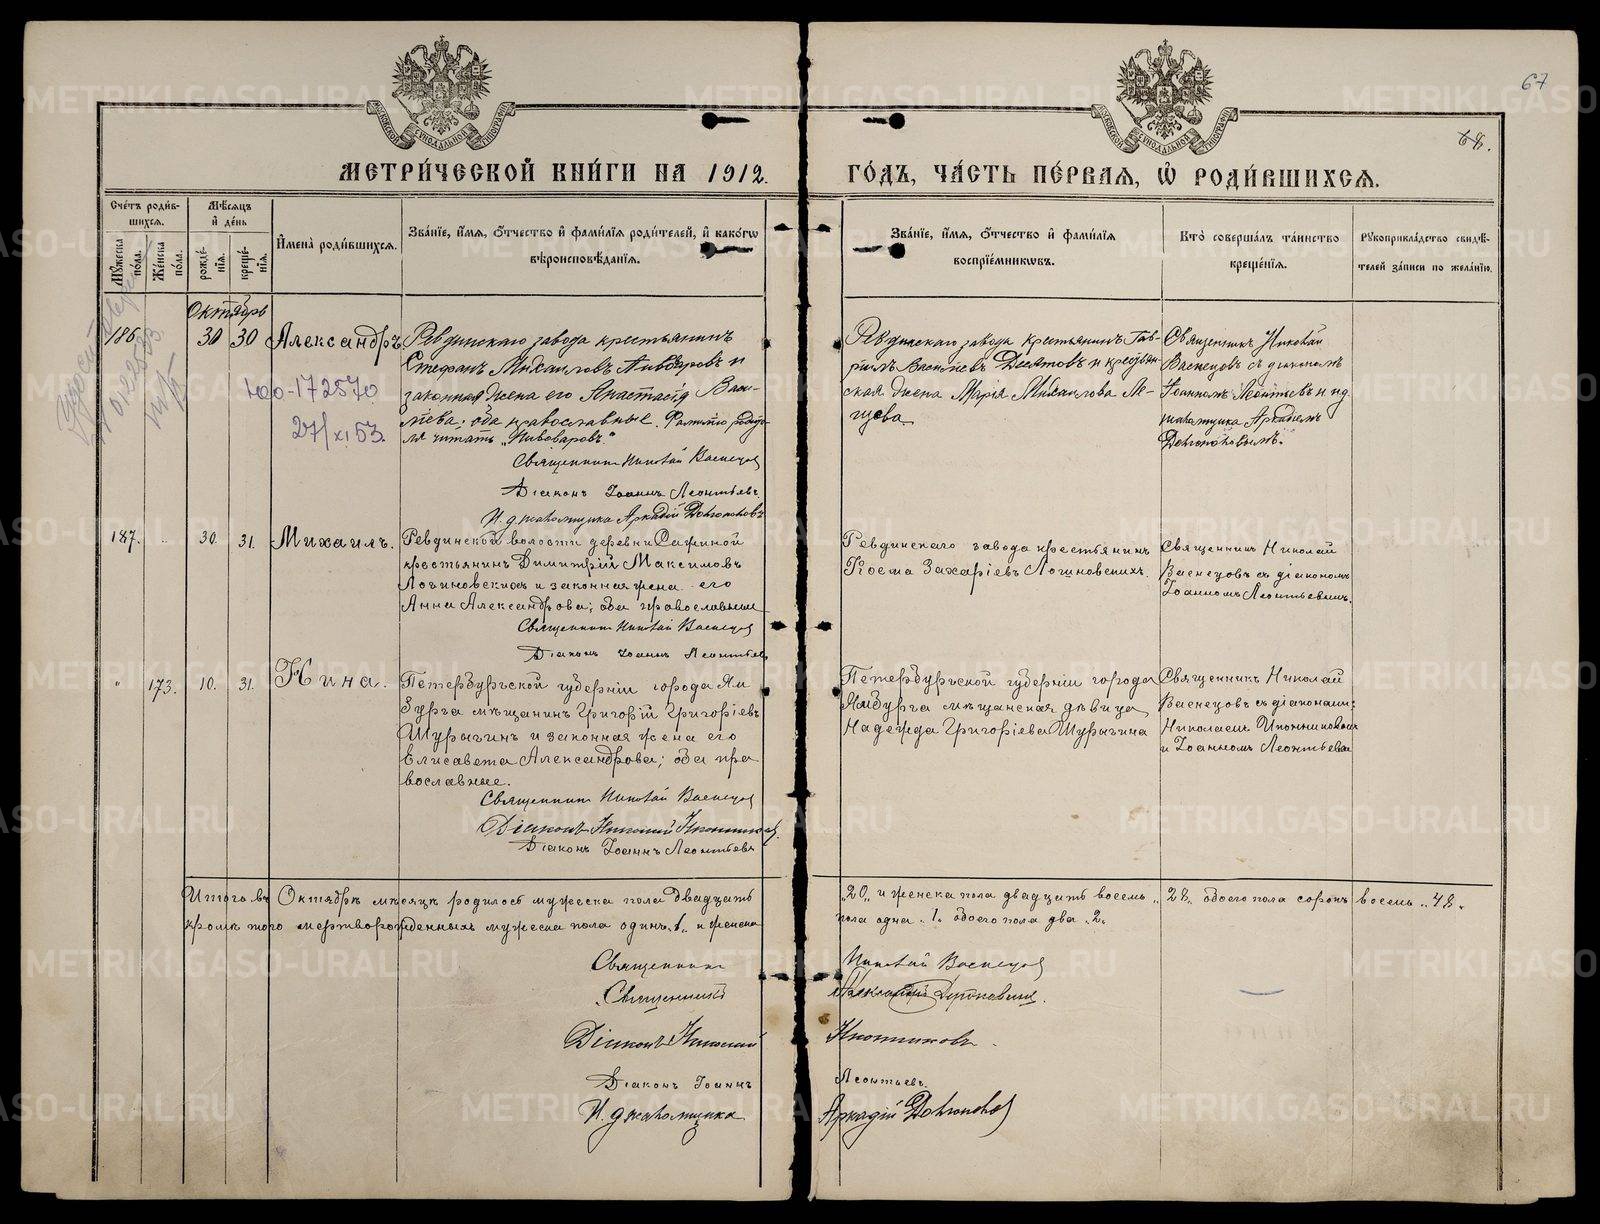 67
68.
МЕТРИ́ЧЕСКОЙ КНИ́ГИ НА 1912. ГО́ДЪ, ЧА́СТЬ ПЕ́РВАЯ, Ѽ РОДИ́ВШИХСЯ.
Сче́тъ роди́в-
шихся.
Мꙋ́жеска
по́ла.
Же́нска
по́ла.
Мѣ́сяцъ
и҆ де́нь
рожде́-
нїя.
креще́-
нїя.
И҆мена̀ роди́вшихся.
Зва́нїе, и҆́мя, ѻ҆́тчество и҆ фами́лїя роди́телей, и҆ како́гѡ
вѣроисповѣ́данїя.
Зва́нїе, и҆́мя, ѻ҆́тчество и҆ фами́лїя
воспрїе́мникѡвъ.
Кто̀ соверша́лъ та́инство
креще́нїя.
Рꙋкоприкла́дство свидѣ́-
телей за́писи по жела́нїю.
Октябрь
186 30 30 Александръ
Ревдинскаго завода крестьянинъ
Стефанъ Михаиловъ Пивоваровъ и
законная жена его Анастасія Васи-
льева; оба православные. Фамилію родите-
ля читать „Пивоваровъ."
Священникъ Николай Васнецов
Діаконъ Іоаннъ Леонтьевъ.
И. д. псаломщика Аркадій
400-172570
27/XI 53.
Ревдинскаго завода крестьянинъ Гав-
ріилъ Васильевъ Десятовъ и крестьян-
ская жена Марія Михаилова
Священникъ Николай
Васнецовъ съ діакономъ
Іоанномъ Леонтьевъ и и.д.
псаломщика Аркадіемъ
187. „ 30. 31. Михаилъ.
Ревдинской волости деревни Сажиной
крестьянинъ Димитрій Максимовъ
Логиновскихъ и законная жена его
Анна Александрова; оба православные
Священникъ Николай Васнецов
Діаконъ Іоаннъ Леонтьев
Ревдинскаго завода крестьянинъ
Косма Захаріевъ Логиновскихъ.
Священникъ Николай
Васнецовъ съ діакономъ
Іоанномъ Леонтьевымъ.
„ 173. 10. 31. Нина.
Петербургской губерніи города Ям
бурга мѣщанинъ Григорій Григоріевъ
Шурыгинъ и законная жена его
Елисавета Александрова; оба пра
вославные.
Священникъ Николай Васнецов
Діаконъ Николай Иконников
Діаконъ Іоаннъ Леонтьевъ
Петербургской губерніи города
Ямбурга мѣщанская дѣвица
Надежда Григоріева Шурыгина
Священникъ Николай
Васнецовъ съ діаконами:
Николаемъ Иконниковымъ
и Іоанномъ Леонтьевы
Итого въ Октябрѣ мѣсяцѣ родилось мужеска пола двадцать „20„ и женска пола двадцать восемь „28„ обоего пола сорокъ восемь „48„
кромѣ того мертворожденныхъ мужеска пола одинъ „1„ и женска пола одна „1„ обоего пола два „2„
Священникъ Николай Васнецов
Священникъ
Діаконъ Николай Иконниковъ
Діаконъ Іоаннъ Леонтьевъ.
И. д. псаломщика Аркадій
METRIKI.GASO-URAL.RU